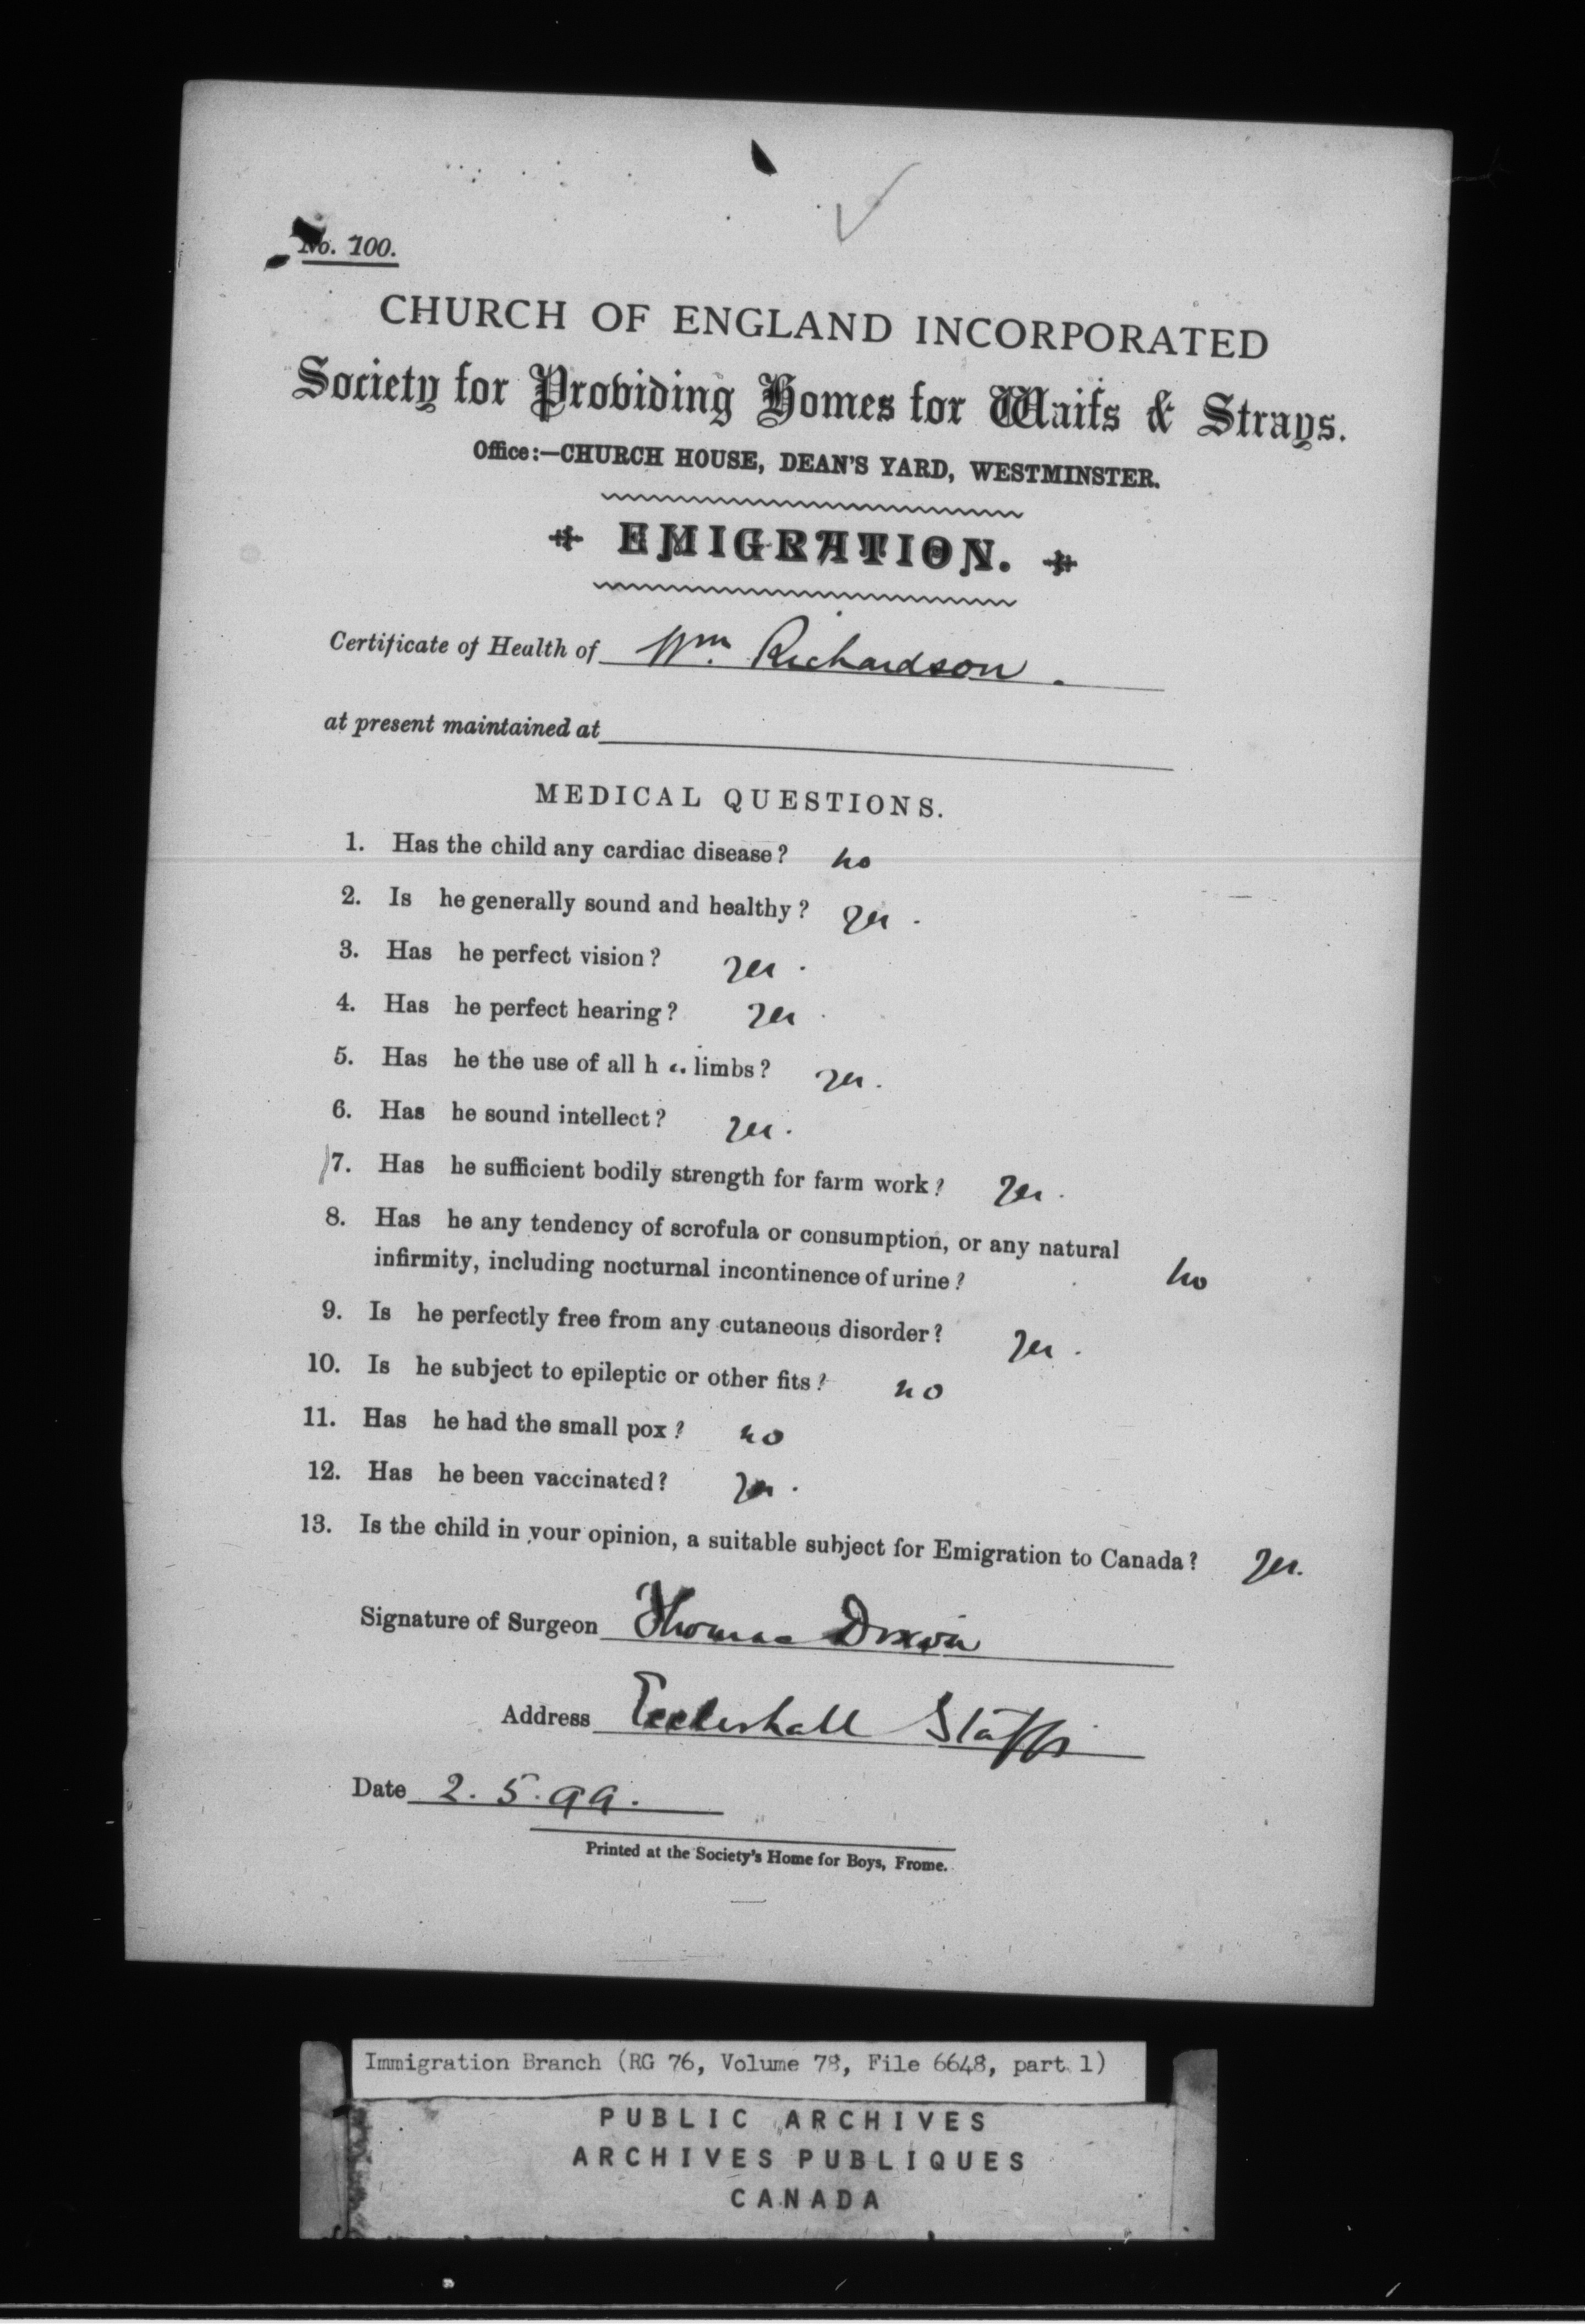 No. 100.
CHURCH OF ENGLAND INCORPORATED
Society for Providing Homes for Waifs & Strays.
Office:—CHURCH HOUSE, DEAN'S YARD, WESTMINSTER.
EMIGRATION.
Certificate of Health of Wm. Richardson.
at present maintained at
MEDICAL QUESTIONS.
1. Has the child any cardiac disease? no
2. Is he generally sound and healthy? yes.
3. Has he perfect vision? yes.
4. Has he perfect hearing? yes.
5. Has he the use of all h is limbs? yes.
6. Has he sound intellect? yes.
7. Has he sufficient bodily strength for farm work? yes.
8. Has he any tendency of scrofula or consumption, or any natural
infirmity, including nocturnal incontinence of urine? no
9. Is he perfectly free from any cutaneous disorder? yes.
10. Is he subject to epileptic or other fits? no
11. Has he had the small pox? no
12. Has he been vaccinated? yes.
13. Is the child in your opinion, a suitable subject for Emigration to Canada? yes.
Signature of Surgeon Thomas Dixon
Address Eccleshall Staffs
Date 2.5.99.
Printed at the Society's Home for Boys, Frome.
Immigration Branch (RG 76, Volume 78, File 6648, part 1)
PUBLIC ARCHIVES
ARCHIVES PUBLIQUES
CANADA